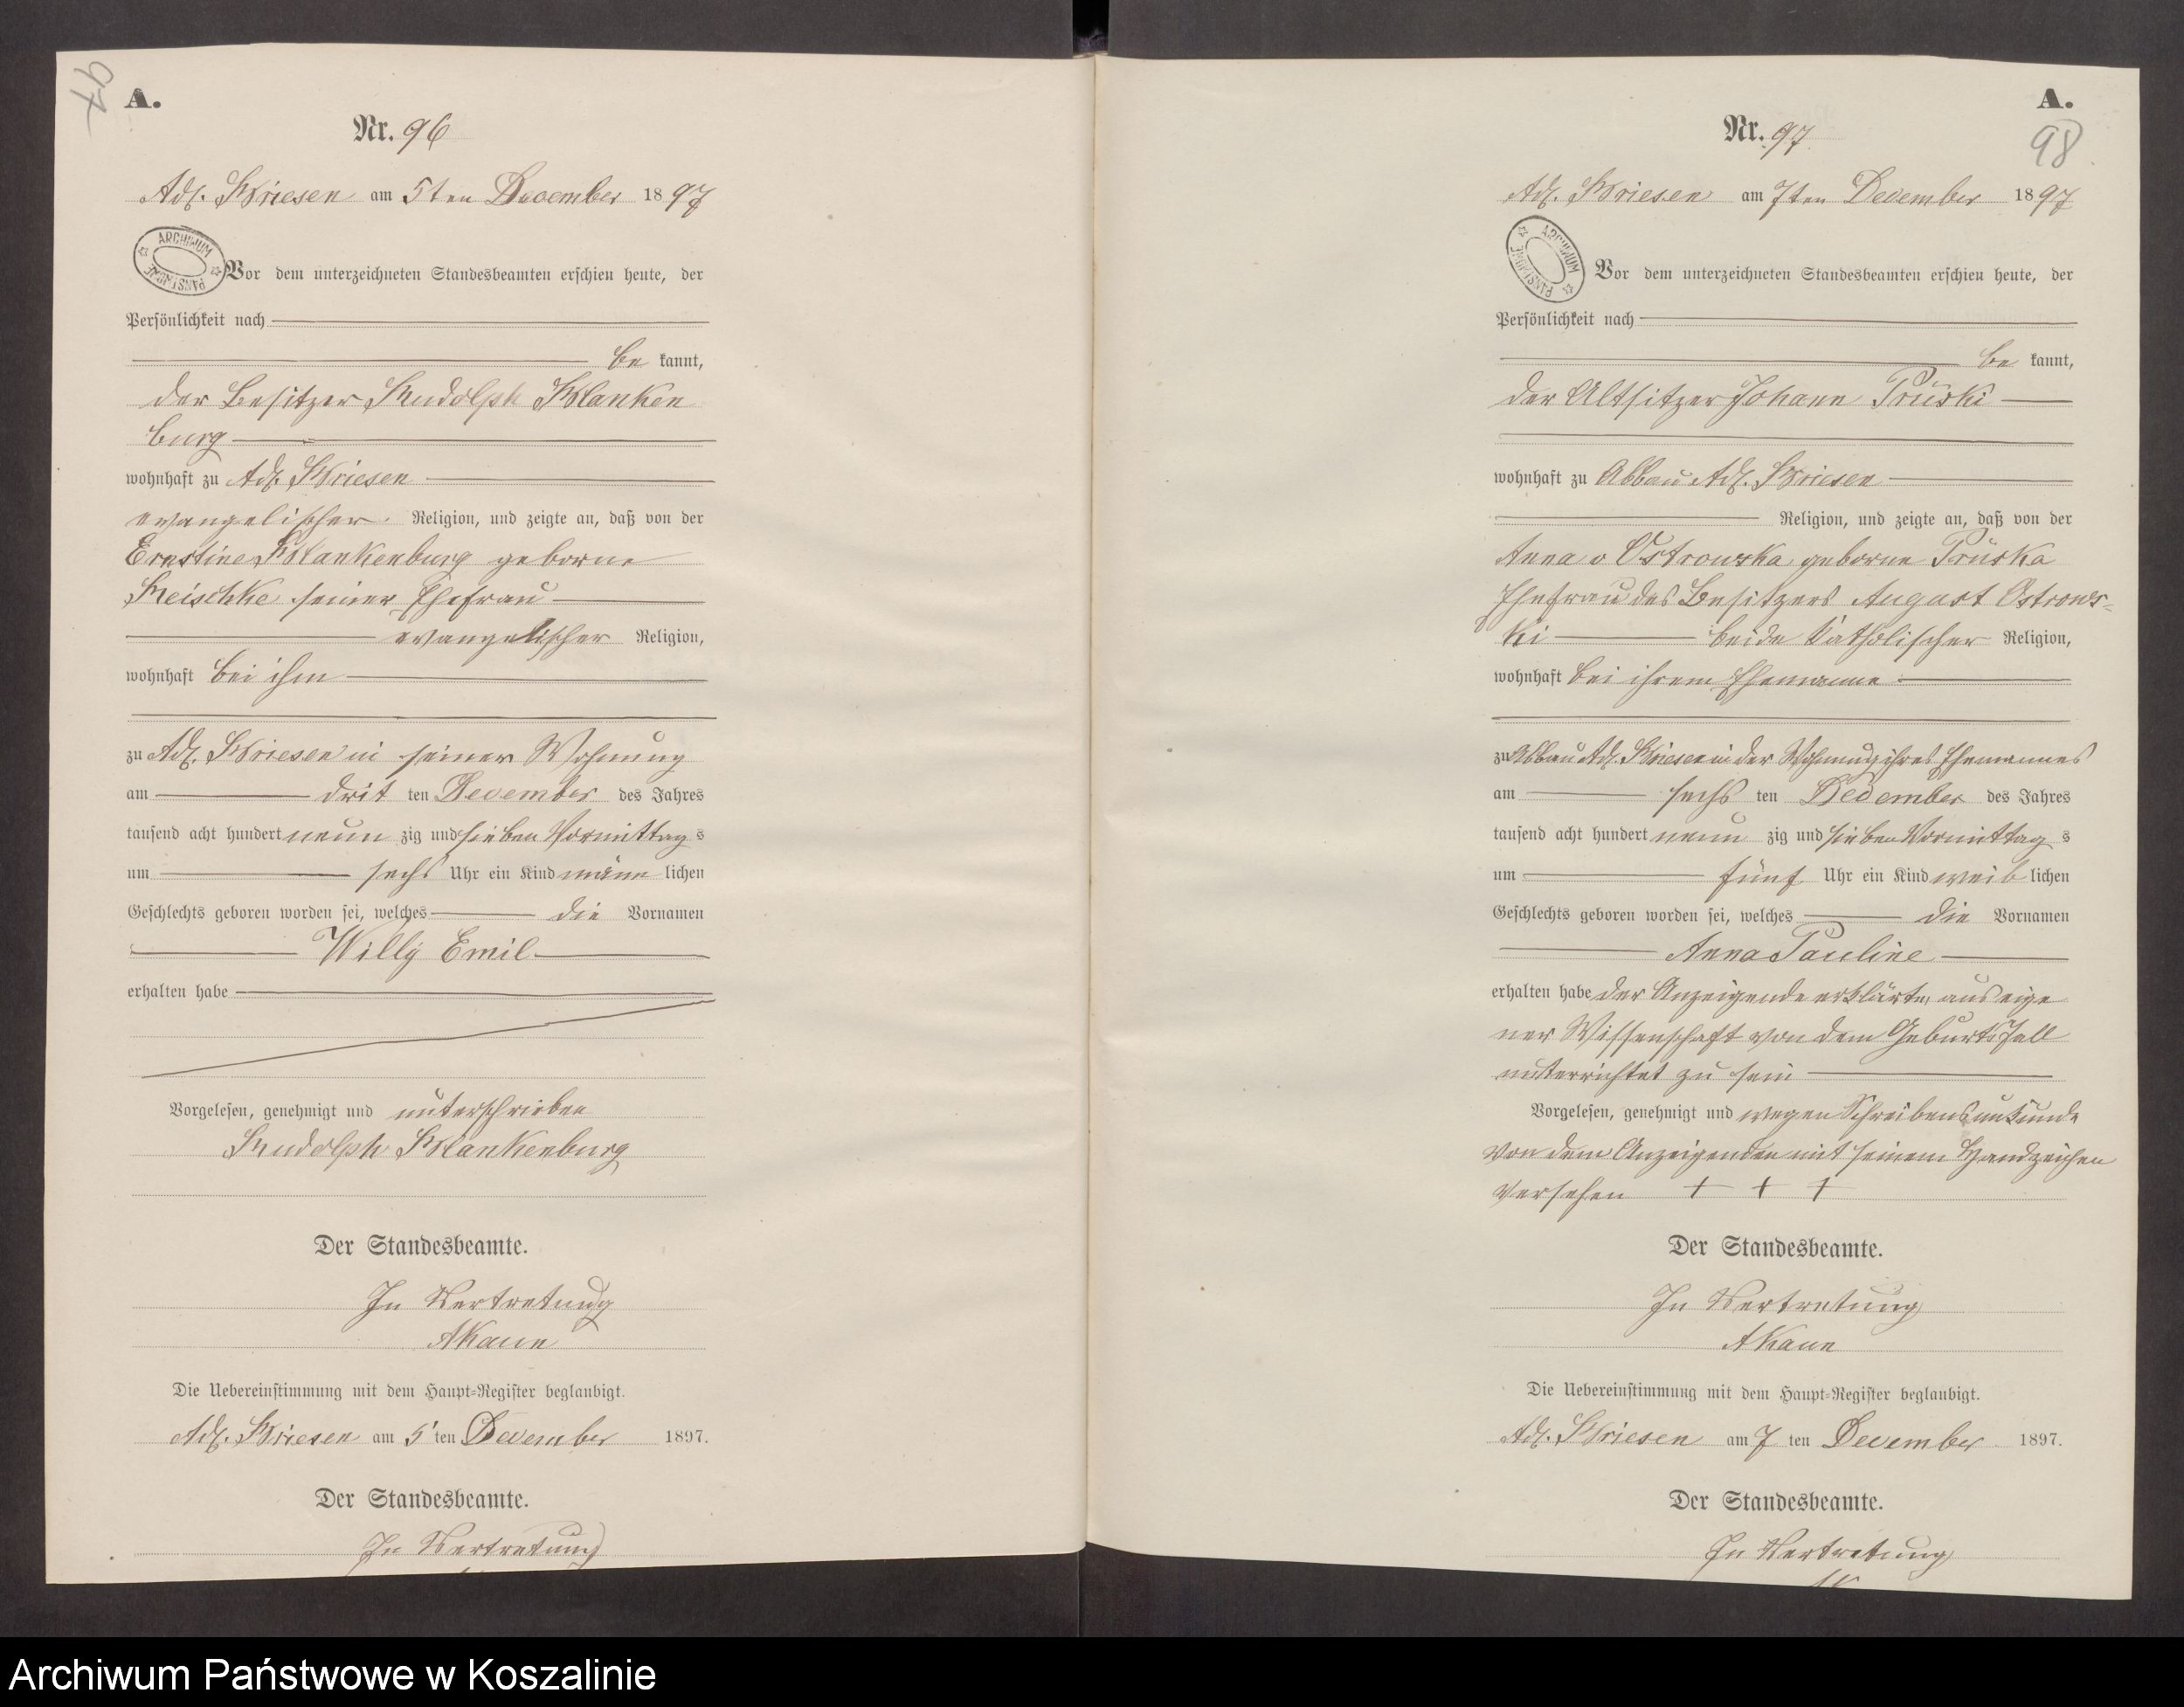 97
A.
Nr. 96
Adl. Briesen am 5ten December 1897
ARCHIWUM PAŃSTWOWE
Vor dem unterzeichneten Standesbeamten erschien heute, der
Persönlichkeit nach
be kannt,
der Besitzer Rudolph Blanken
burg
wohnhaft zu Adl. Briesen
evangelischer Religion, und zeigte an, daß von der
Ernestine Blankenburg geborne
Reischke seiner Ehefrau
evangelischer Religion,
wohnhaft bei ihm
zu Adl. Briesen in seiner Wohnung
am drit ten December des Jahres
tausend acht hundert neun zig und sieben Vormittag s
um sechs Uhr ein Kind männ lichen
Geschlechts geboren worden sei, welches die Vornamen
Willy Emil
erhalten habe
Vorgelesen, genehmigt und unterschrieben
Rudolph Blankenburg
Der Standesbeamte.
In Vertretung
AKaun
Die Uebereinstimmung mit dem Haupt-Register beglaubigt.
Adl. Briesen am 5 ten December 1897.
Der Standesbeamte.
In Vertretung
A.
98
Nr. 97
Adl. Briesen am 7ten December 1897
ARCHIWUM PAŃSTWOWE
Vor dem unterzeichneten Standesbeamten erschien heute, der
Persönlichkeit nach
be kannt,
der Altsitzer Johann Prüski
wohnhaft zu Abbau Adl. Briesen
Religion, und zeigte an, daß von der
Anna v Ostrowska geborne Prüska
Ehefrau des Besitzers August Ostrows-
ki beide katholischer Religion,
wohnhaft bei ihrem Ehemanne
zu Abbau Adl. Briesen in der Wohnung ihres Ehemannes
am sechs ten December des Jahres
tausend acht hundert neun zig und sieben Vormittag s
um fünf Uhr ein Kind weib lichen
Geschlechts geboren worden sei, welches die Vornamen
Anna Pauline
erhalten habe der Anzeigende erklärte, aus eige
ner Wissenschaft von dem Geburtsfall
unterrichtet zu sein
Vorgelesen, genehmigt und wegen Schreibensunkunde
von dem Anzeigenden mit seinem Handzeichen
versehen + + +
Der Standesbeamte.
In Vertretung
AKaun
Die Uebereinstimmung mit dem Haupt-Register beglaubigt.
Adl. Briesen am 7 ten December 1897.
Der Standesbeamte.
In Vertretung
Archiwum Państwowe w Koszalinie